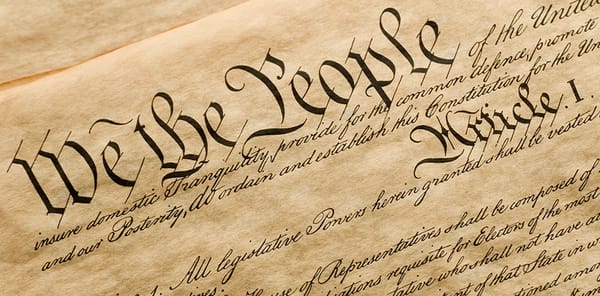 We the People of the United
insure domestic Tranquility, provide for the common defence, promote
and our Posterity, do ordain and establish this Constitution for the Uni
Article. I.
1. All legislative Powers herein granted shall be vested
use of Representatives shall be composed of
ations requisite for Electors of the most
tative who shall not have at
nt of that State in w